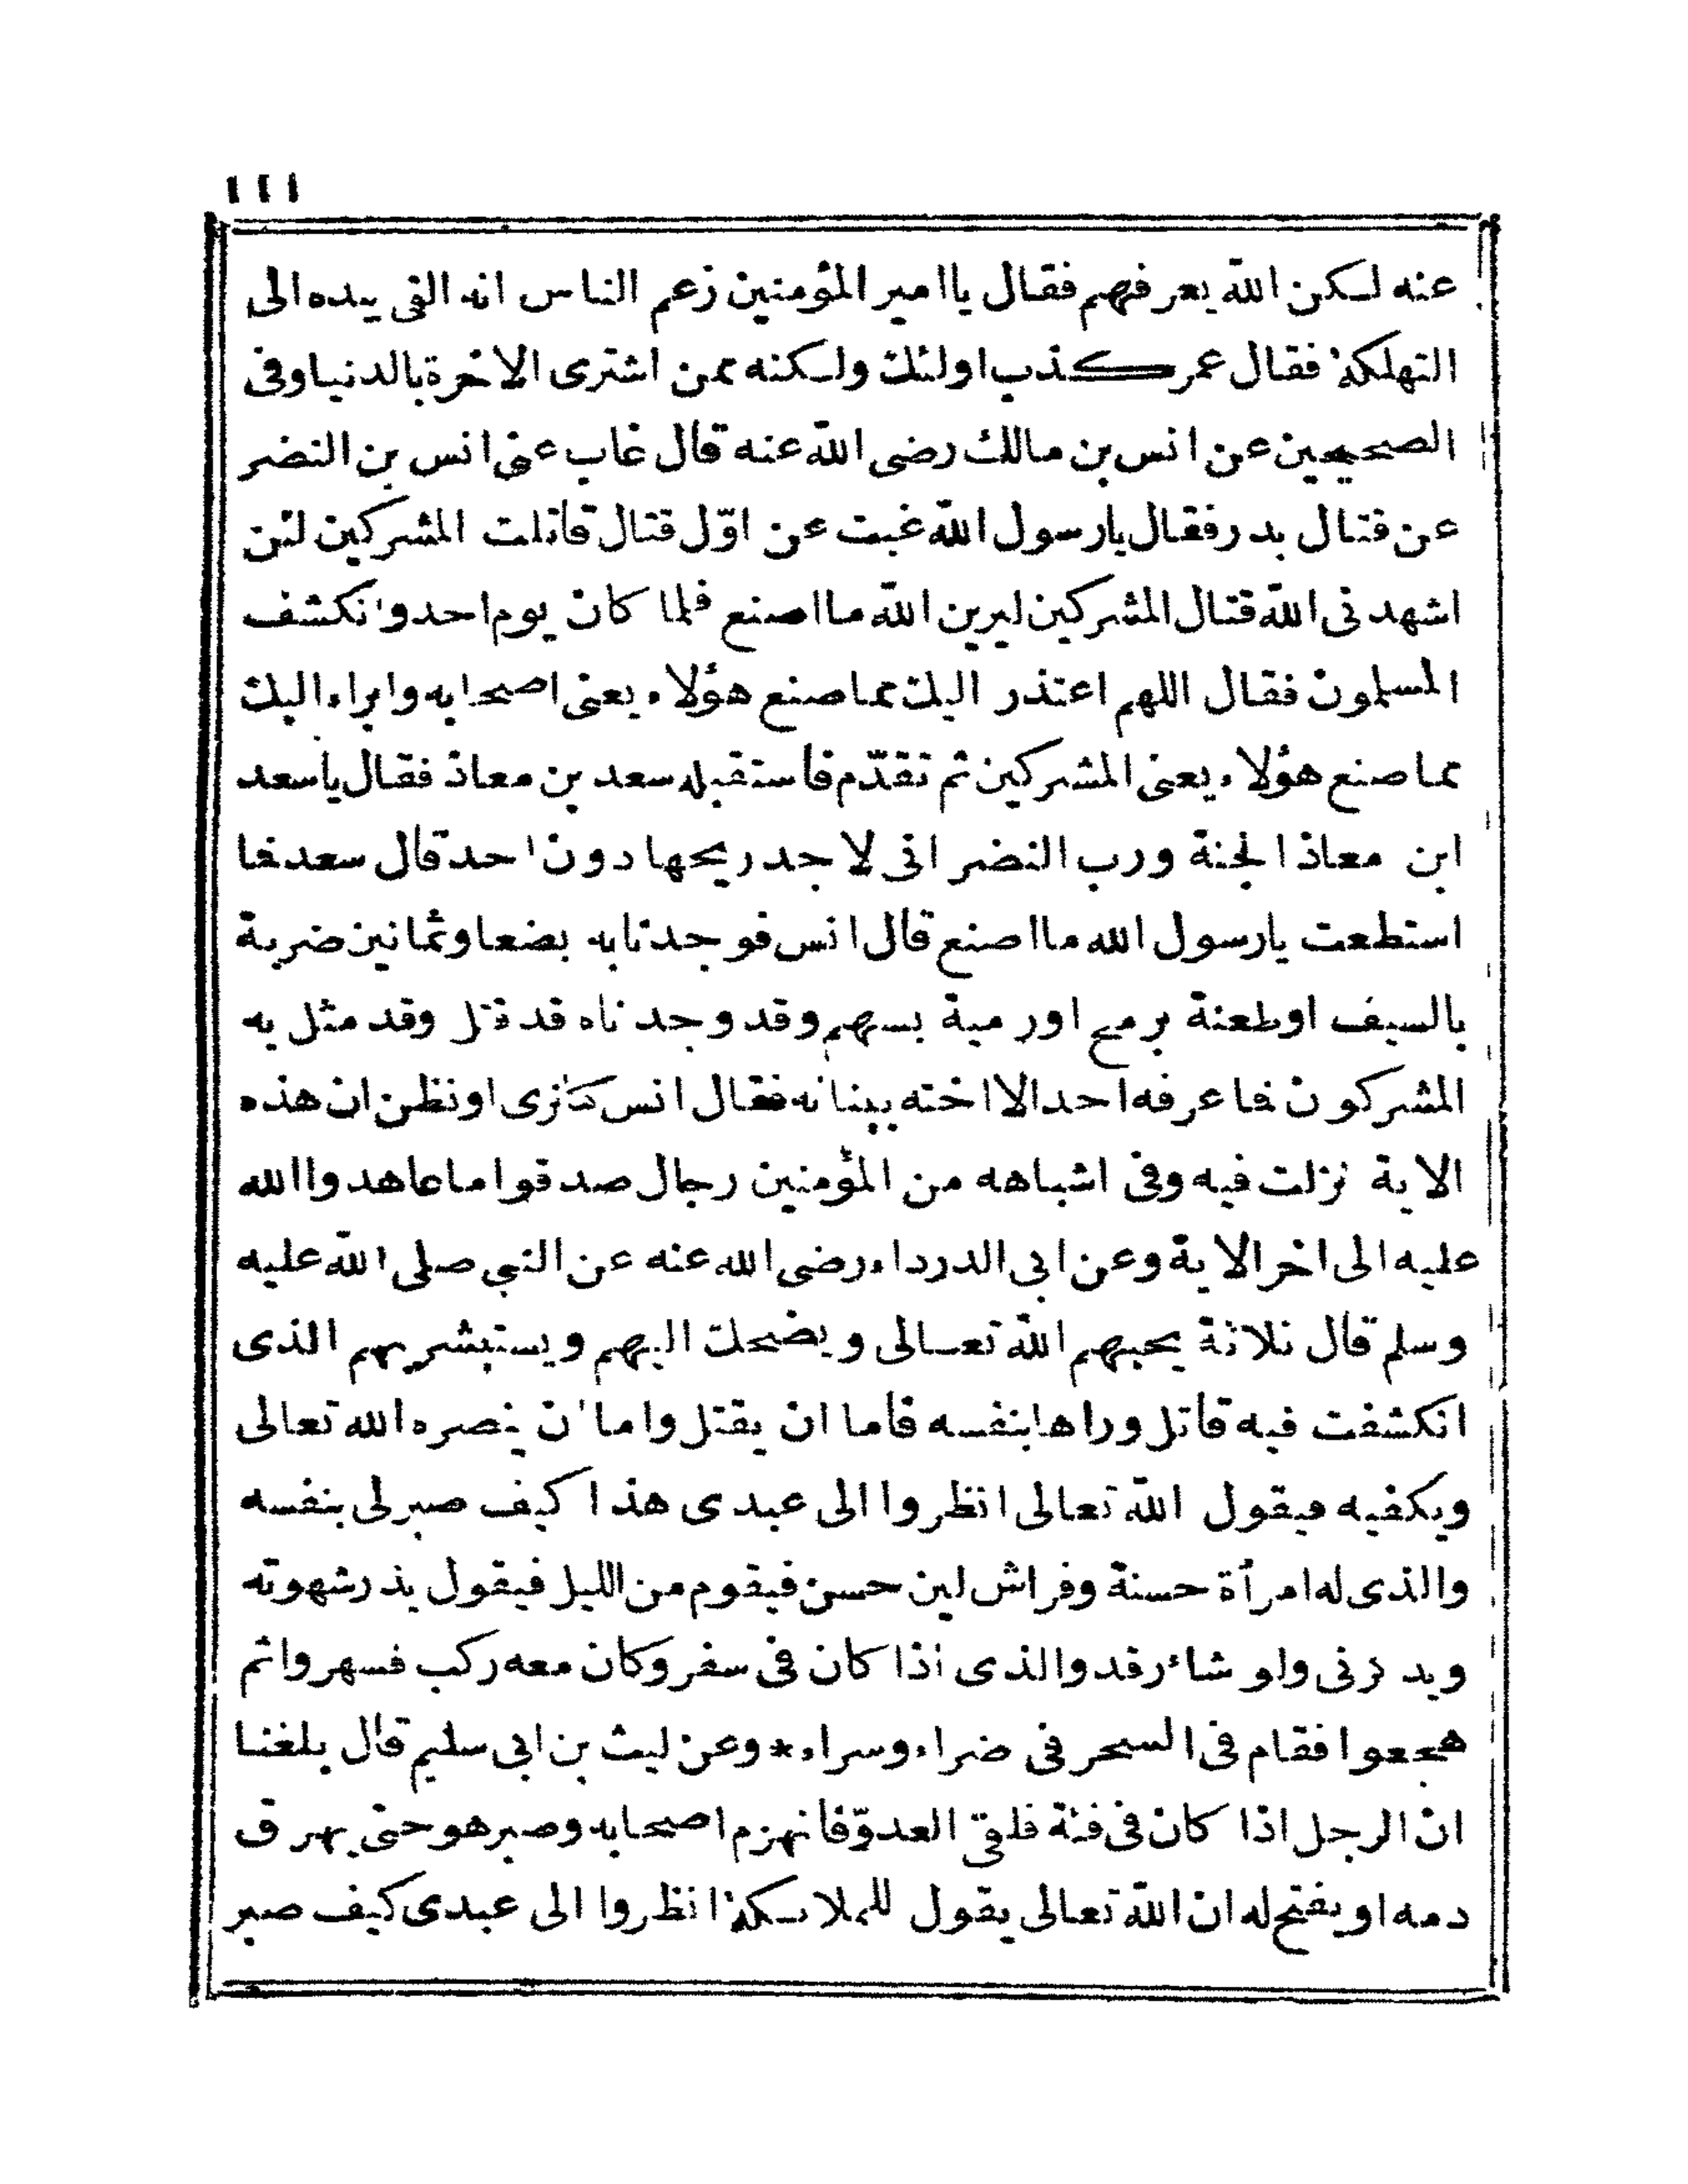 ١١١
عنه لكن الله يعرفهم فقال يا امير المؤمنين زعم الناس انه القى بيده الى
التهلكة فقال عمر كذب اولئك ولكنه ممن اشترى الاخرة بالدنيا وفى
الصحيحين عن انس بن مالك رضى الله عنه قال غاب عمى انس بن النضر
عن قتال بدر فقال يارسول الله غبت عن اوّل قتال قاتلت المشركين لئن
اشهدنى الله قتال المشركين ليرين الله ما اصنع فلما كان يوم احد وانكشف
المسلمون فقال اللهم اعتذر اليك مما صنع هؤلاء يعنى اصحابه وابراء اليك
مما صنع هؤلاء يعنى المشركين ثم تقدّم فاستقبله سعد بن معاذ فقال ياسعد
ابن معاذ الجنة ورب النضر انى لاجد ريحها دون احد قال سعد فما
استطعت يارسول الله ما اصنع قال انس فوجدنا به بضعا وثمانين ضربة
بالسيف اوطعنة برمح اورمية بسهم وقد وجدناه قد قتل وقد مثل به
المشركون فما عرفه احد الا اخته ببنانه فقال انس كنا نرى او نظن ان هذه
الاية نزلت فيه وفى اشباهه من المؤمنين رجال صدقوا ما عاهدوا الله
عليه الى اخر الاية وعن ابى الدرداء رضى الله عنه عن النبى صلى الله عليه
وسلم قال ثلاثة يحبهم الله تعالى ويضحك اليهم ويستبشر بهم الذى
انكشفت فيه قاتل وراها بنفسه فاما ان يقتل واما ان ينصره الله تعالى
ويكفيه فيقول الله تعالى انظروا الى عبدى هذا كيف صبر لى بنفسه
والذى له امرأة حسنة وفراش لين حسن فيقوم من الليل فيقول يذر شهوته
ويذكرنى ولو شاء رقد والذى اذا كان فى سفر وكان معه ركب فسهروا ثم
هجعوا فقام فى السحر فى ضراء وسراء * وعن ليث بن ابى سليم قال بلغنا
ان الرجل اذا كان فى فئة فلقى العدوّ فانهزم اصحابه وصبر هو حتى يهرق
دمه او يفتح له ان الله تعالى يقول للملائكة انظروا الى عبدى كيف صبر